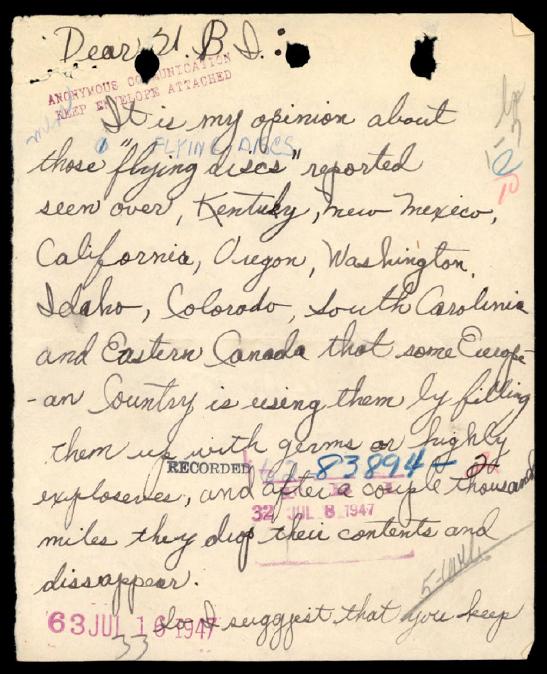 Dear F. B. I. :
ANONYMOUS COMMUNICATION
KEEP ENVELOPE ATTACHED
It is my opinion about
FLYING DISCS
those "flying discs" reported
seen over, Kentuky, New Mexico,
California, Oregon, Washington,
Idaho, Colorado, South Carolinia
and Eastern Canada that some Europe-
-an Country is using them by filling
them up with germs or highly
RECORDED 62-83894-
explosives, and after a couple thousand
32 JUL 8 1947
miles they drop their contents and
dissappear.
So I suggest that you keep
63 JUL 16 1947
33